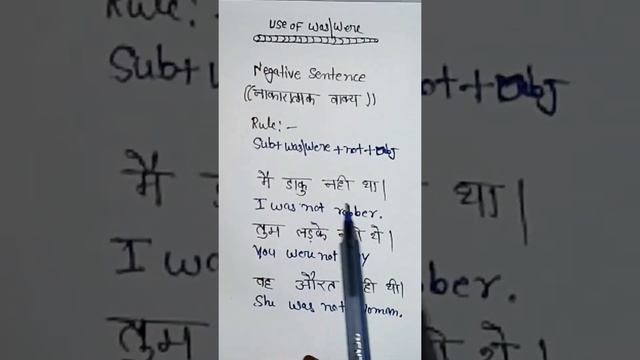 USE OF was/were
Negative Sentence
((नाकारात्मक वाक्य))
Rule:-
Sub+was/were+not+obj
मै डाकु नही था|
I was not robber.
तुम लड़के थे|
You were not
वह औरत थी|
She was not woman.